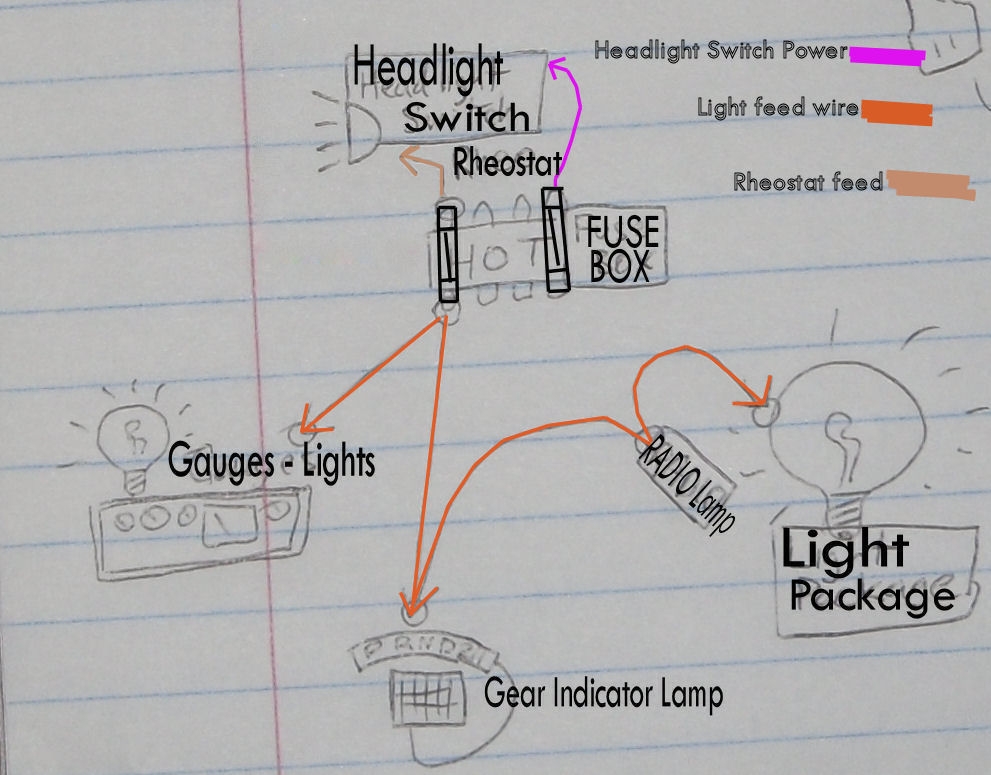 Headlight
Switch
Headlight Switch Power
Light feed wire
Rheostat feed
Rheostat
HOT
FUSE
BOX
Gauges - Lights
RADIO Lamp
Light
Package
PRND2
Gear Indicator Lamp